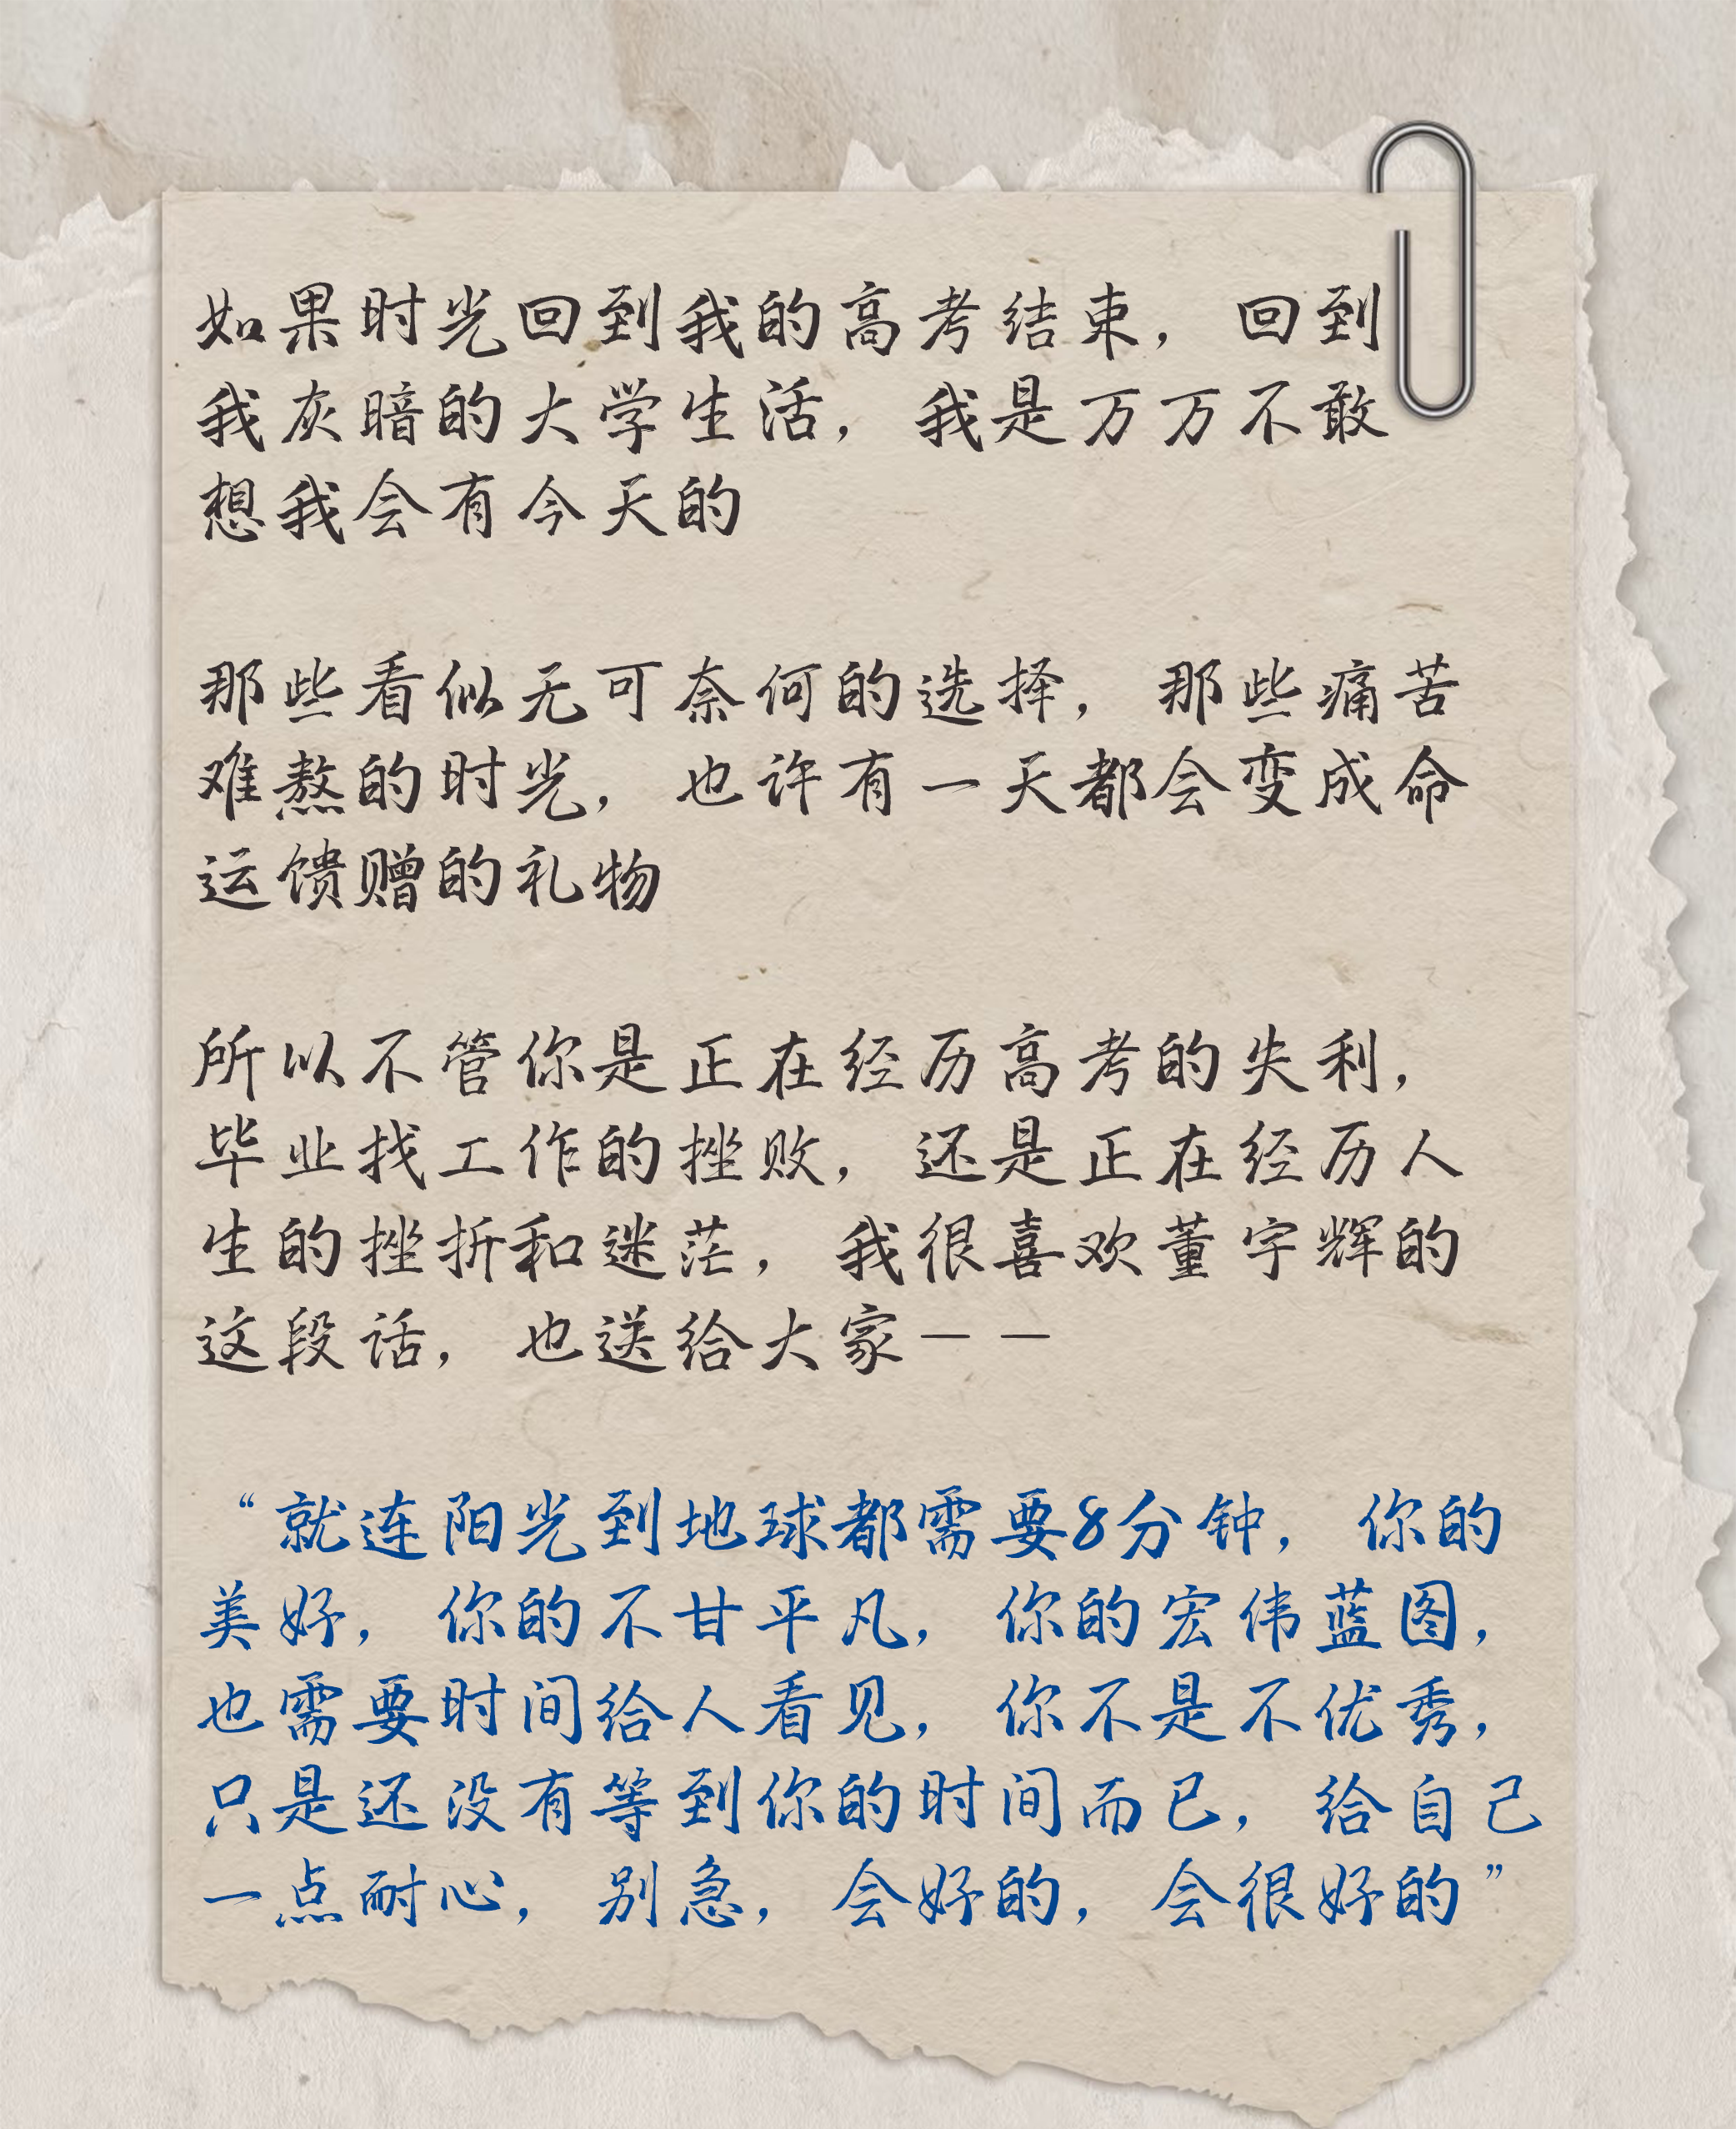 如果时光回到我的高考结束，回到
我灰暗的大学生活，我是万万不敢
想我会有今天的
那些看似无可奈何的选择，那些痛苦
难熬的时光，也许有一天都会变成命
运馈赠的礼物
所以不管你是正在经历高考的失利，
毕业找工作的挫败，还是正在经历人
生的挫折和迷茫，我很喜欢董宇辉的
这段话，也送给大家——
“就连阳光到地球都需要8分钟，你的
美好，你的不甘平凡，你的宏伟蓝图，
也需要时间给人看见，你不是不优秀，
只是还没有等到你的时间而已，给自己
一点耐心，别急，会好的，会很好的”